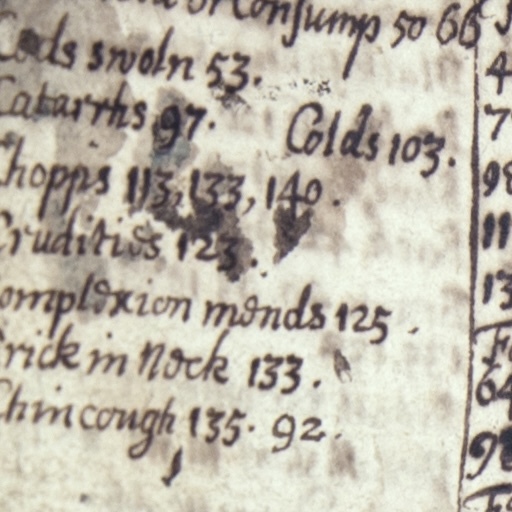 or Consump 50 66
Cods swoln 53.
Catarrhs 97. Colds 103.
Chopps 113, 133, 140.
Cruditios 123.
Complexion mends 125.
Crick in Nock 133.
Chincough 135. 92.
4
7
98
11
13
64